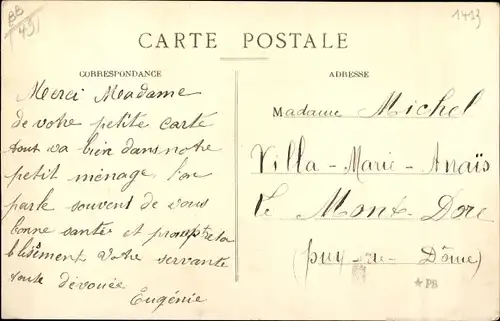 BB
451
1413
CARTE POSTALE
CORRESPONDANCE
Merci Madame
de votre petite carte
tout va bien dans notre
petit ménage l'on
parle souvent de vous
bonne santée et promptre ta
blisement votre servante
toute dévouée
Eugénie
ADRESSE
Madame Michel
Villa - Marie - Anaïs
Le Mont-Dore
(puy-de-Dôme)
★PB